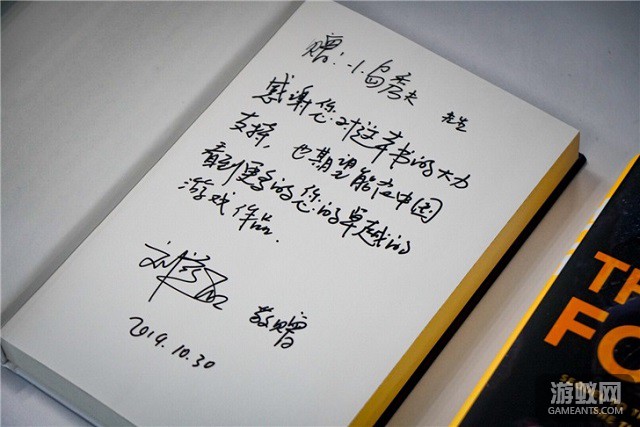 赠：小岛秀夫 先生
感谢您对这本书的大力
支持，也期望能在中国
看到更多的您的卓越的
游戏作品.
敬赠
2019.10.30
FO
游蚁网
GAMEANTS.COM